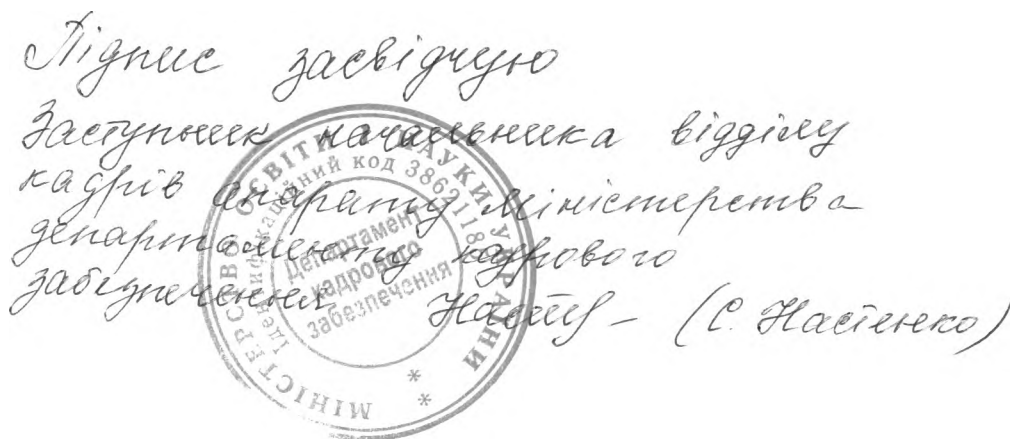 Підпис засвідчую
Заступник начальника відділу
кадрів апарату Міністерства
департаменту кадрового
забезпечення (С. Настенко)
МІНІСТЕРСТВО ОСВІТИ І НАУКИ УКРАЇНИ * *
Ідентифікаційний код 38621185
Департамент
кадрового
забезпечення